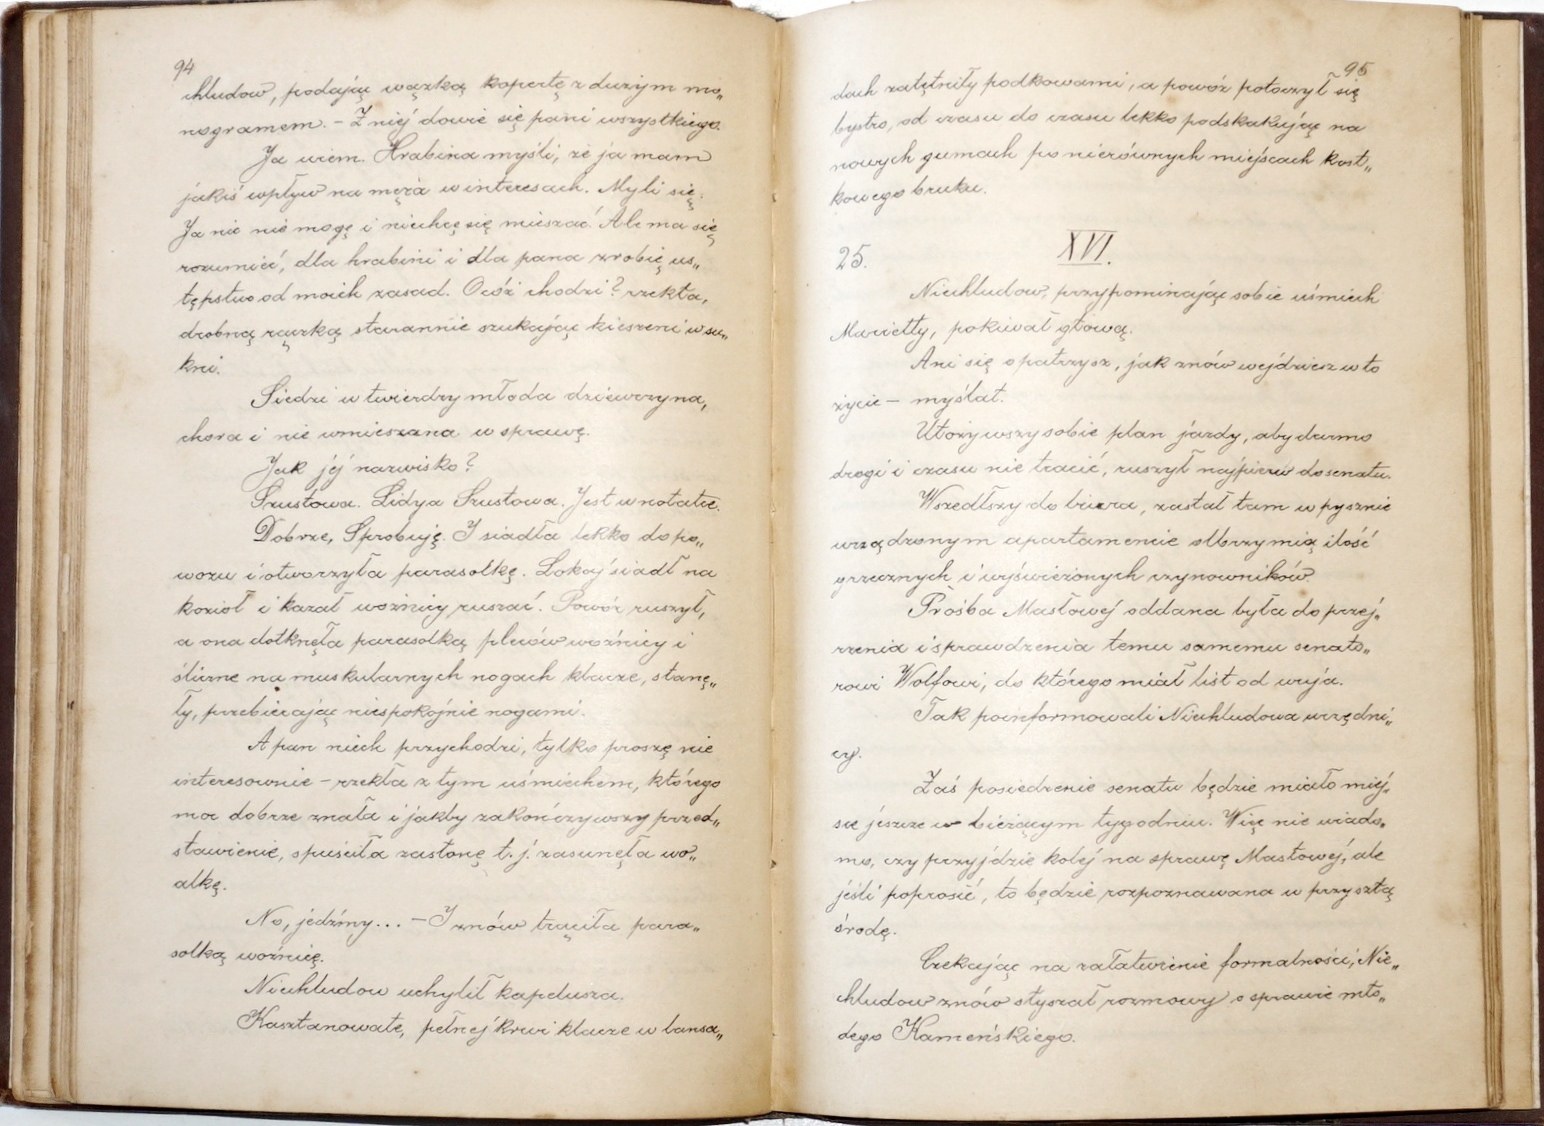 94
chludow, podając wązką kopertę z dużym mo„
nogramem. – Z niej dowie się pani wszystkiego.
Ja wiem. Hrabina myśli, że ja mam
jakiś wpływ na męża w interesach. Myli się.
Ja nic nie mogę i niechcę się mieszać. Ale ma się
rozumieć, dla hrabini i dla pana zrobię us„
tępstwo od moich zasad. Ocóż chodzi? rzekła,
drobną rączką starannie szukając kieszeni w su„
kni.
Siedzi w twierdzy młoda dziewczyna,
chora i nie wmieszana w sprawę.
Jak jej nazwisko?
Szustowa. Lidya Szustowa. Jest w notatce.
Dobrze, Sprobuję. I siadła lekko do po„
wozu i otworzyła parasolkę. Lokaj siadł na
kozioł i kazał woźnicy ruszać. Powóz ruszył,
a ona dotknęła parasolką pleców woźnicy i
śliczne na muskularnych nogach klacze, stanę„
ły, przebierając niespokojnie nogami.
A pan niech przychodzi, tylko proszę nie
interesownie – rzekła z tym uśmiechem, którego
moc dobrze znała i jakby zakończywszy przed„
stawienie, spuściła zasłonę t. j. zasunęła wo„
alkę.
No, jedźmy... – I znów trąciła para„
solką woźnicę.
Niechludow uchylił kapelusza.
Kasztanowate, pełnej krwi klacze w lansa„
95
dach zatętniły podkowami, a powóz potoczył się
bystro, od czasu do czasu lekko podskakując na
nowych gumach po nierównych miejscach kost„
kowego bruku.
25.
XVI.
Niechludow, przypominając sobie uśmiech
Marietty, pokiwał głową.
Ani się opatrzysz, jak znów wejdziesz w to
życie – myślał.
Ułożywszy sobie plan jazdy, aby darmo
drogi i czasu nie tracić, ruszył najpierw do senatu.
Wszedłszy do biura, zastał tam w pysznie
urządzonym apartamencie olbrzymią ilość
grzecznych i wyświeżonych czynowników.
Prośba Masłowej oddana była do przej„
rzenia i sprawdzenia temu samemu senato„
rowi Wolfowi, do którego miał list od wuja.
Tak poinformowali Niechludowa urzędni„
cy.
Zaś posiedzenie senatu będzie miało miej„
sce jeszcze w bieżącym tygodniu. Więc nie wiado„
mo, czy przyjdzie kolej na sprawę Masłowej, ale
jeśli poprosić, to będzie rozpoznawana w przyszłą
środę.
Czekając na załatwienie formalności, Nie„
chludow znów słyszał rozmowy o sprawie mło„
dego Kameńskiego.